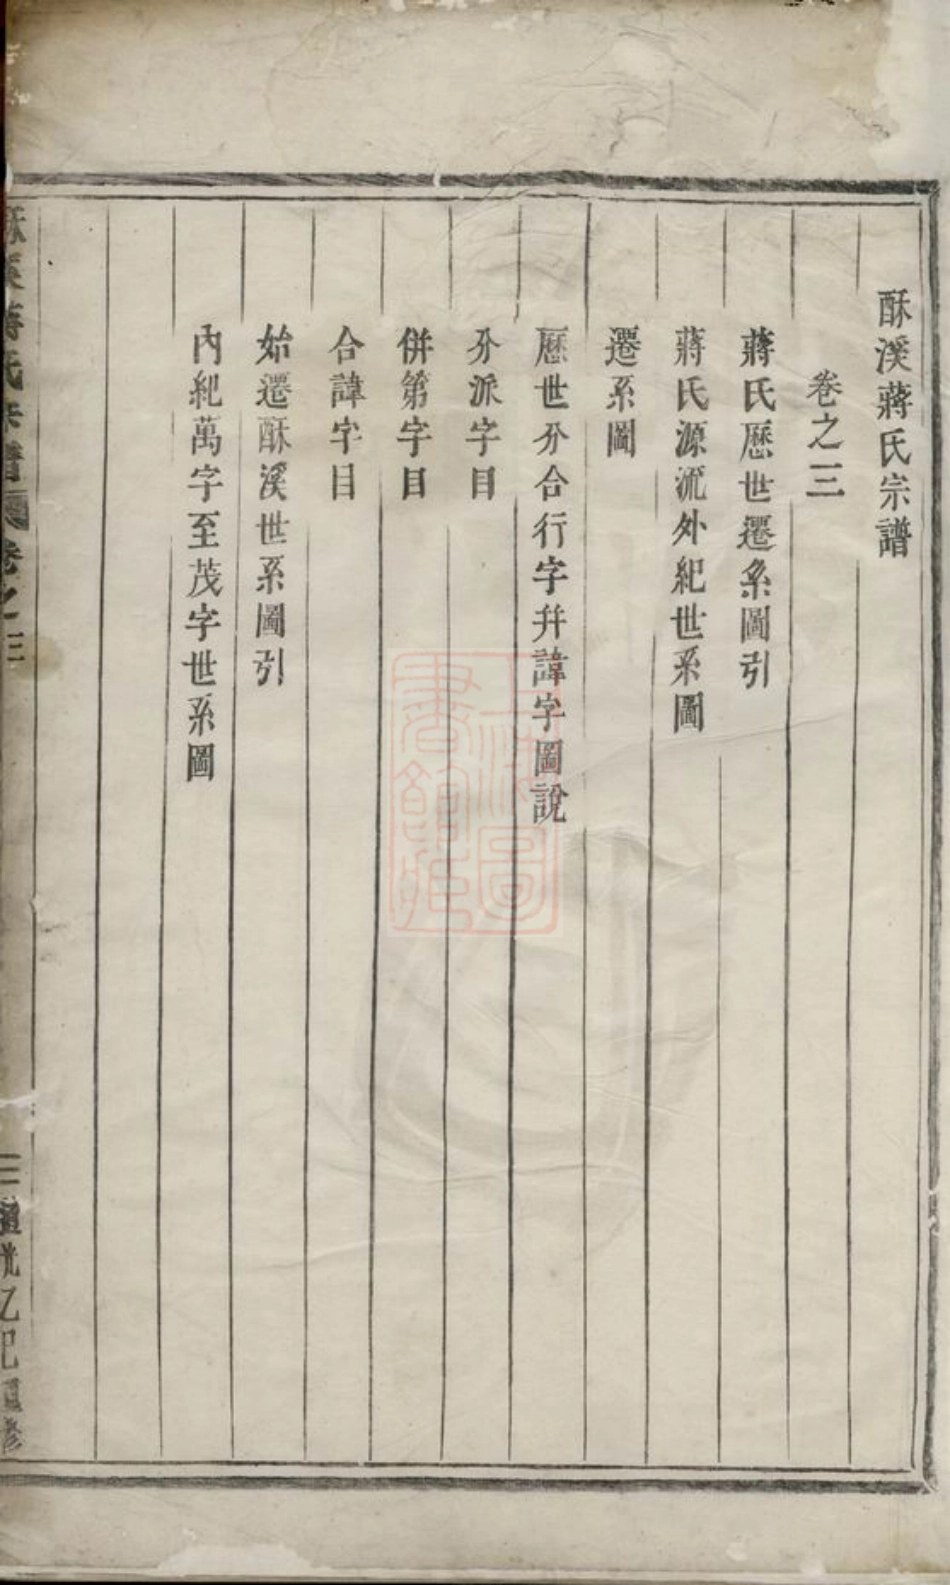 酥溪蔣氏宗譜
卷之三
蔣氏歷世遷系圖引
蔣氏源流外紀世系圖
遷系圖
歷世分合行字并諱字圖說
分派字目
併第字目
合諱字目
始遷酥溪世系圖引
內紀萬字至茂字世系圖
酥溪蔣氏宗譜 卷之三
三 道光乙巳重修
上海圖書館藏